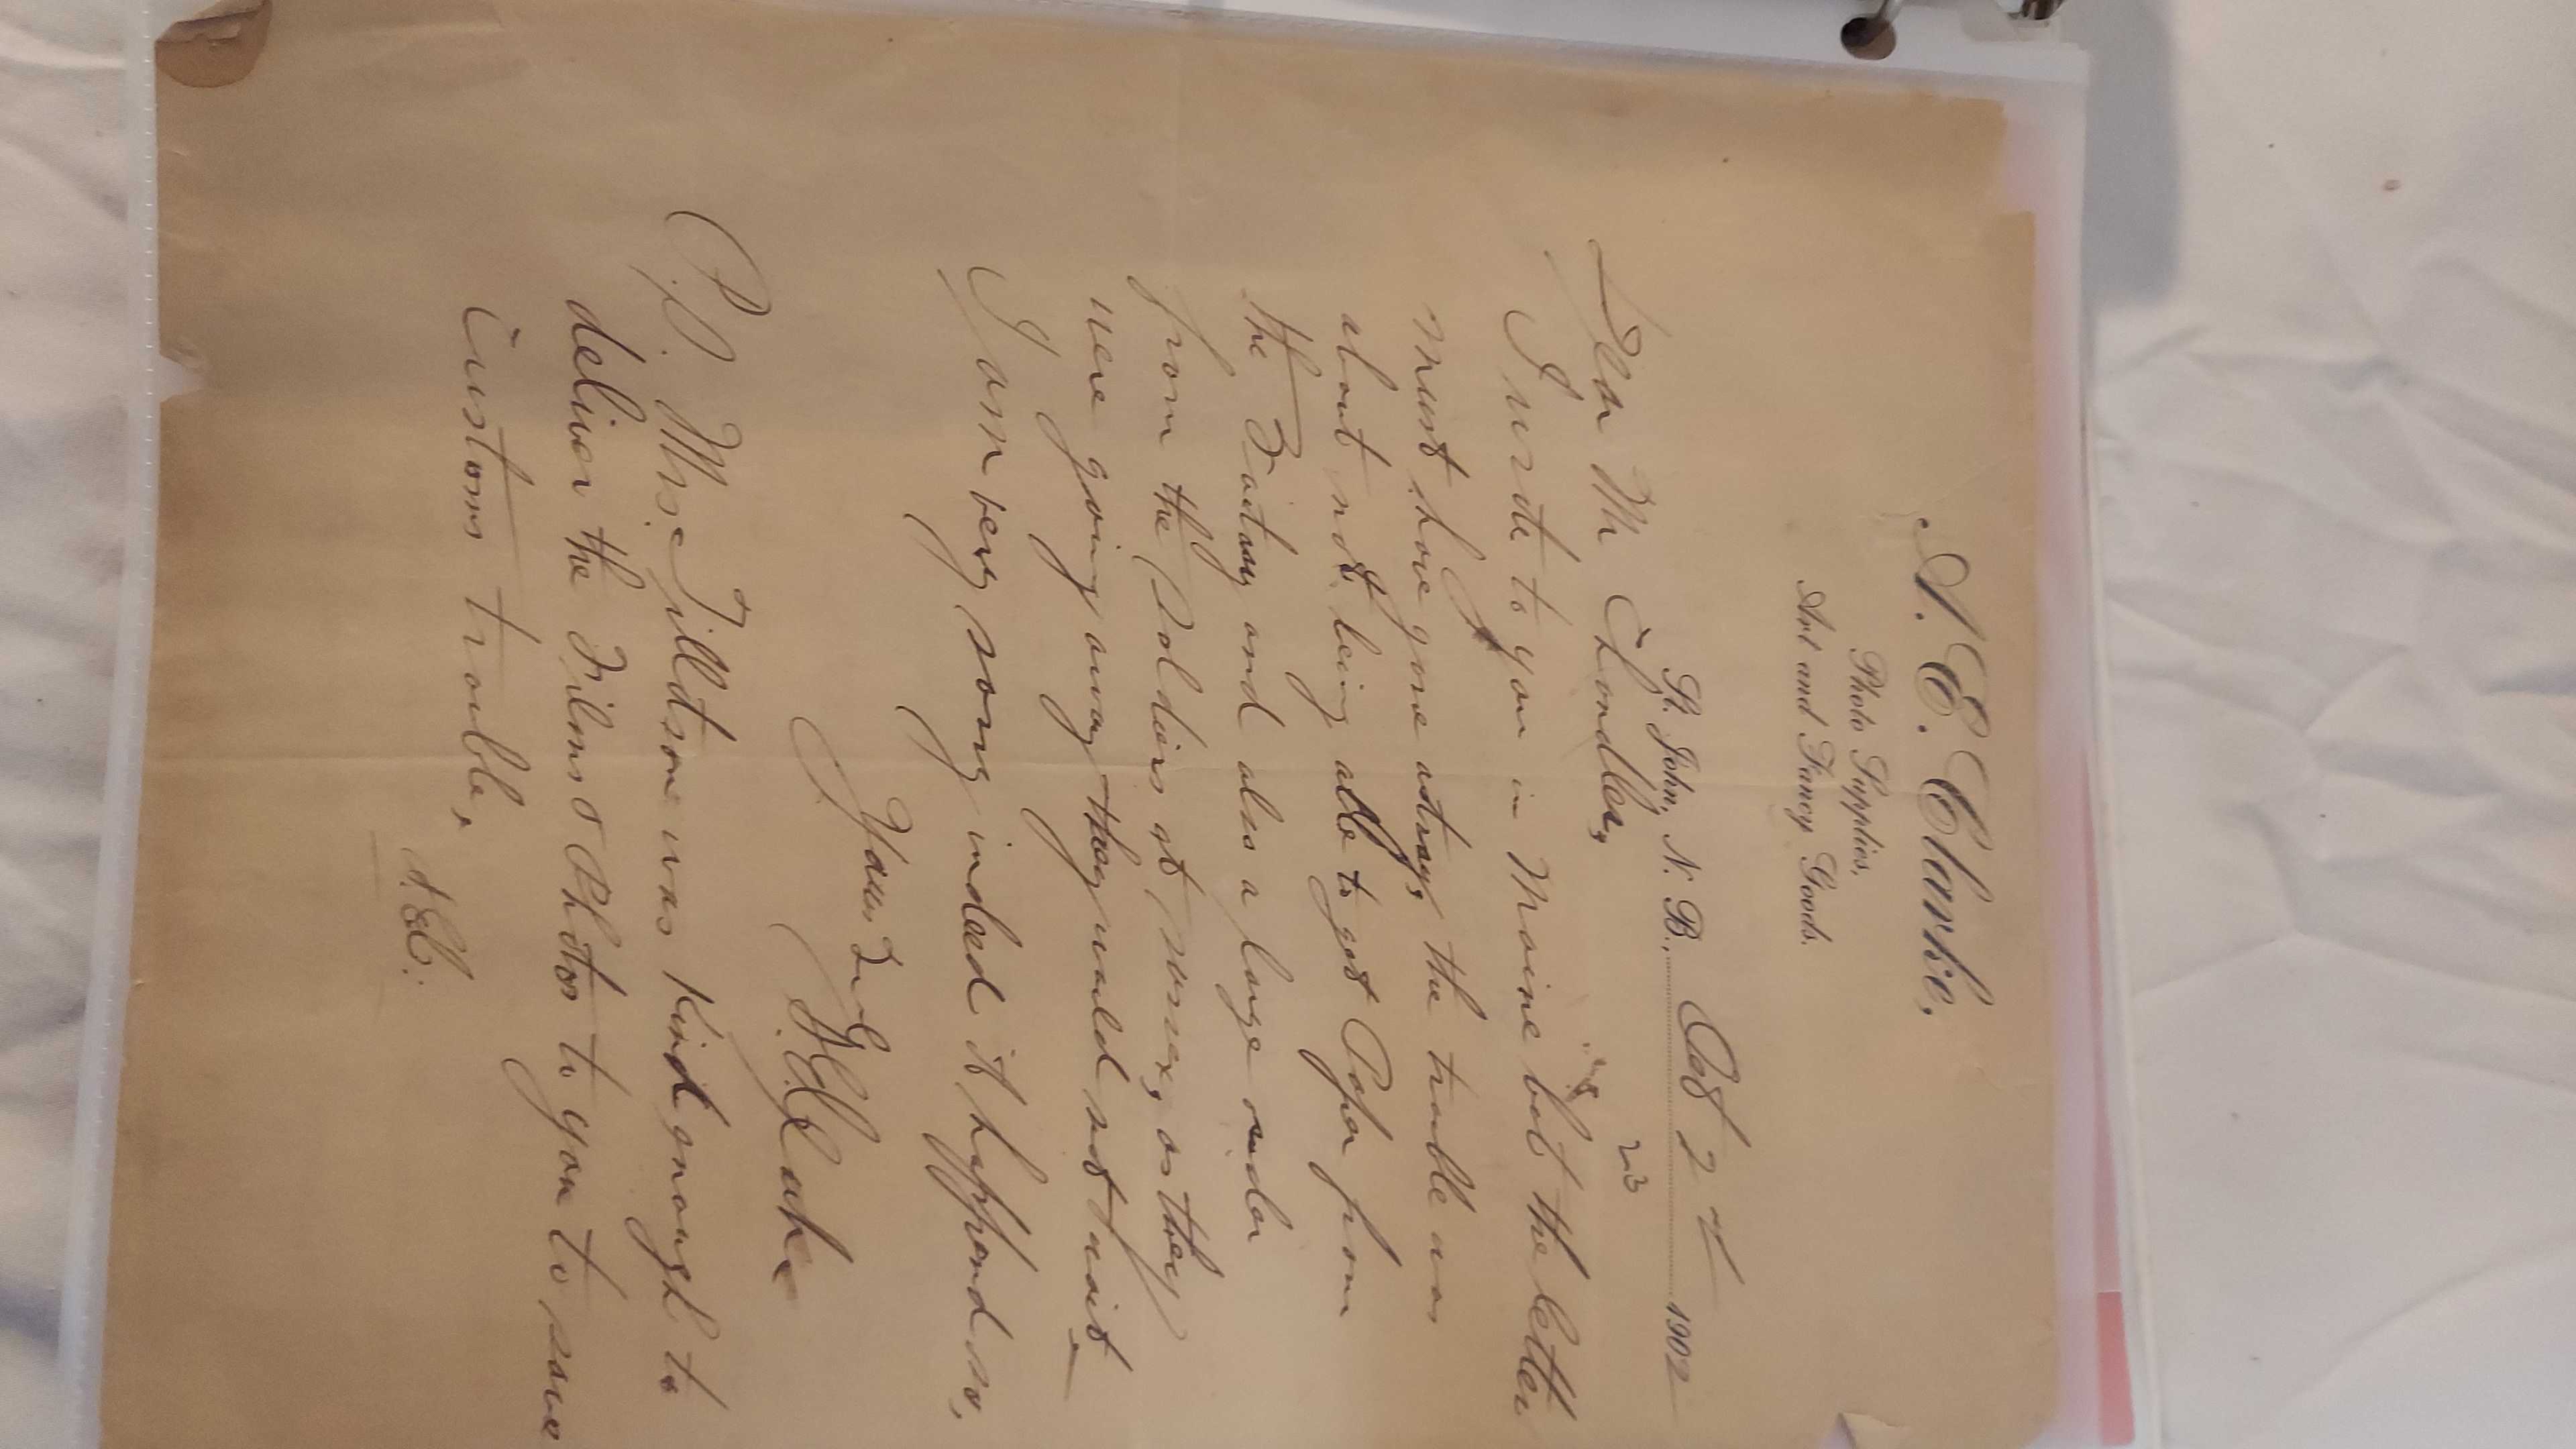 A. E. Clarke,
Photo Supplies,
Art and Fancy Goods.
St. John, N. B., Oct 2 1902
23
Dear Mr Chandler,
I wrote to you in Maine but the letter
must have gone astray, the trouble was
about not being able to get Paper from
the Factory and also a large order
from the Soldiers at Sussex, as they
were going away they would not wait
I am very sorry indeed it happend so,
Yours Truly
A.E. Clarke
P.S. Mrs. Tilldson was kind enough to
deliver the Films & Photos to you to save
Customs trouble,
A.E.C.